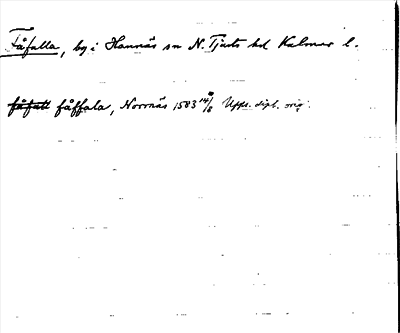 Fåfalla, by i Hannäs sn N. Tjusts hd Kalmar l.
fåfall fåffala, Norrnäs 1503 14/8 Upps. dipl. orig.